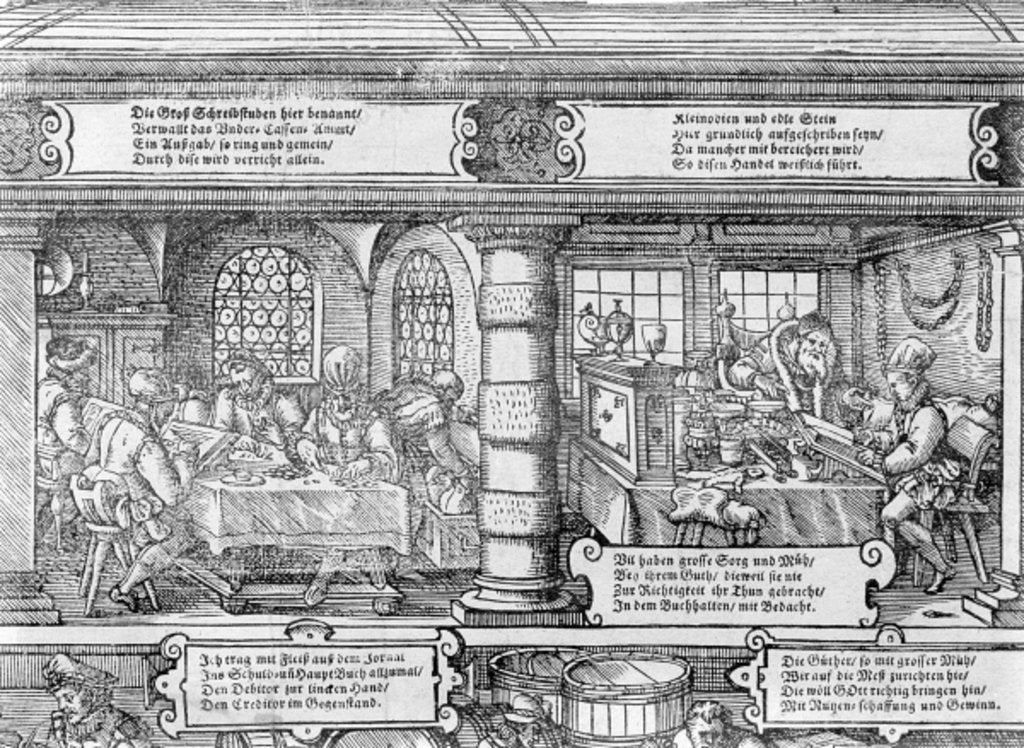 Die Groß Schreibstuben hier benannt/
Verwalt das Under-Cassen-Ampt/
Ein Außgab/ so ring und gemein/
Durch dise wird verricht allein.
Kleinodien und edle Stein
Hier grundlich aufgeschriben seyn/
Da mancher mit bereichert wird/
So disen Handel weißlich führt.
Vil haben grosse Sorg und Müh/
Bey ihrem Guth/ dieweil sie nie
Zur Richtigkeit ihr Thun gebracht/
In dem Buchhalten/ mit Bedacht.
Ich trag mit Fleiß auß dem Jornal
Ins Schuld-uñ Haupt Buch allzumal/
Den Debitor zur lincken Hand/
Den Creditor im Gegenstand.
Die Güther/ so mit grosser Müh/
Wir auf die Meß zurichten hie/
Die wöll GOtt richtig bringen hin/
Mit Nutzen schaffung und Gewinn.